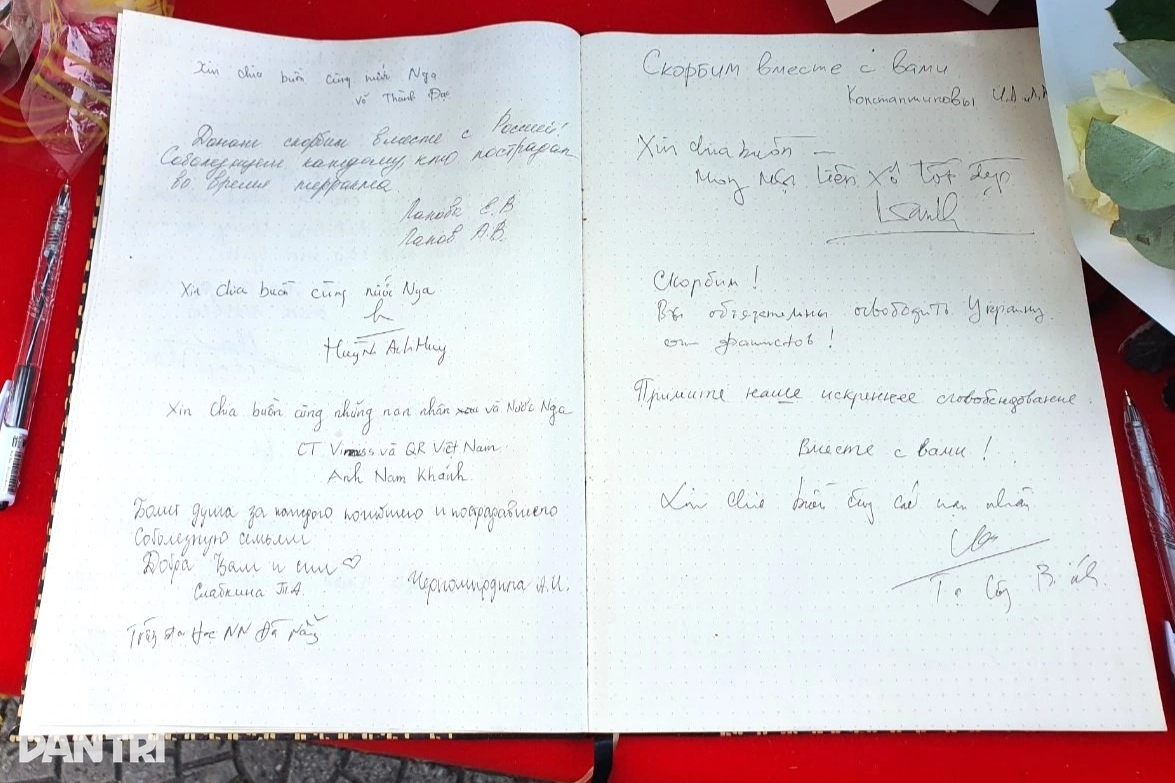 Xin chia buồn cùng nước Nga
Võ Thành Đạt
Дананг скорбим вместе с Россией!
Соболезнуем каждому, кто пострадал
во время терракта.
Панова Е.В
Панов А.В.
Xin chia buồn cùng nước Nga
Huỳnh Anh Huy
Xin chia buồn cùng những nạn nhân và Nước Nga
CT Virruss và QR Việt Nam
Anh Nam Khánh
Болит душа за каждого погибшего и пострадавшего
Соболезную семьям
Добра Вам и сил ♡
Слабкина Т.А.
Черномырдина А.И.
Trường Đại Học NN Đà Nẵng
Скорбим вместе с вами
Константиновы
Xin chia buồn –
Mong Liên Xô tốt đẹp
Скорбим!
Вы обязательны освободить Украину
от фашистов!
Примите наше искреннее
Вместе с вами!
Xin chia buồn cùng các nạn nhân
Tạ
DANTRI